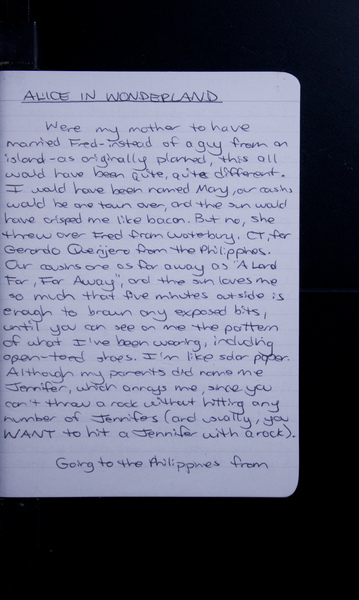 ALICE IN WONDERLAND
Were my mother to have
married Fred-instead of a guy from an
island-as originally planned, this all
would have been quite, quite different.
I would have been named Mary, our cousins
would be one town over, and the sun would
have crisped me like bacon. But no, she
threw over Fred from Waterbury, CT, for
Gerardo from the Philippines.
Our cousins are as far away as "A Land
Far, Far Away", and the sun loves me
so much that five minutes outside is
enough to brown any exposed bits,
until you can see on me the pattern
of what I've been wearing, including
open-toed shoes. I'm like solar paper.
Although my parents did name me
Jennifer, which annoys me, since you
can't throw a rock without hitting any
number of Jennifers (and usually, you
WANT to hit a Jennifer with a rock).
Going to the Philippines from